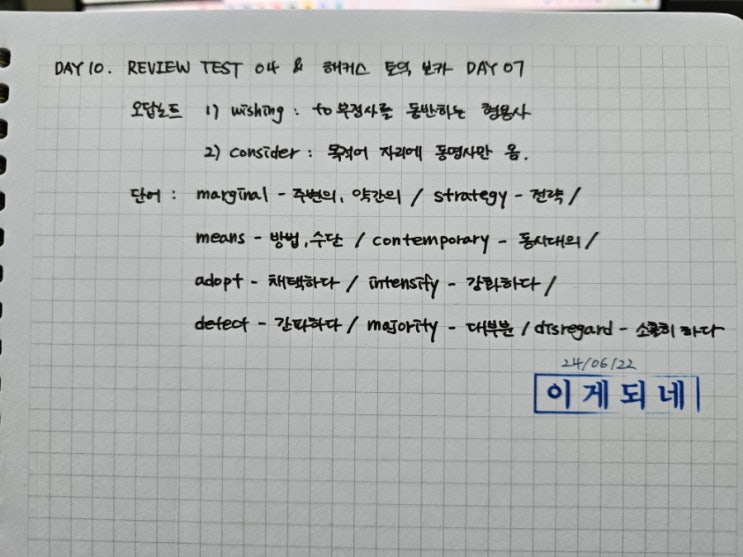 DAY 10. REVIEW TEST 04 & 해커스 토익 보카 DAY 07
오답노트 1) wishing : to 부정사를 동반하는 형용사
2) consider : 목적어 자리에 동명사만 옴.
단어 : marginal - 주변의, 약간의 / strategy - 전략 /
means - 방법, 수단 / contemporary - 동시대의 /
adopt - 채택하다 / intensify - 강화하다 /
detect - 간파하다 / majority - 대부분 / disregard - 소홀히 하다
24/06/22
이게되네